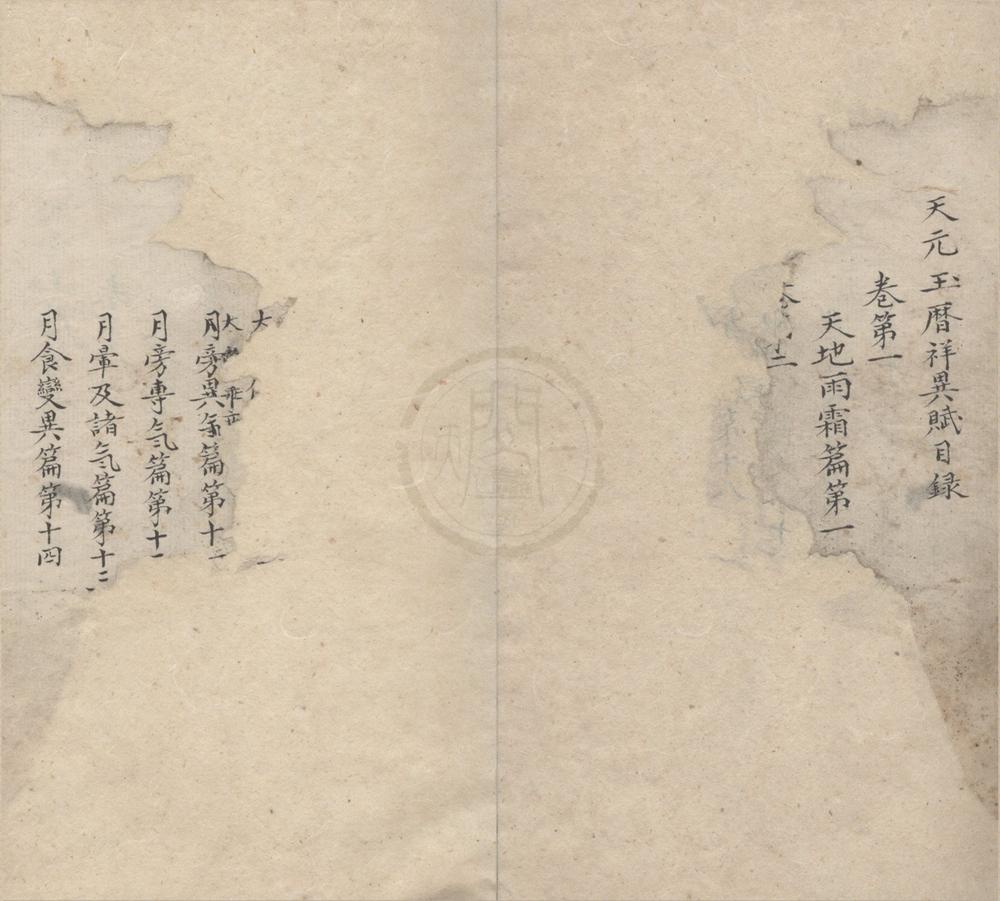 天元玉暦祥異賦目録
卷第一
天地雨霜篇第一
二
月旁異氣篇第十
月旁專氣篇第十
月暈及諸氣篇第十二
月食變異篇第十四